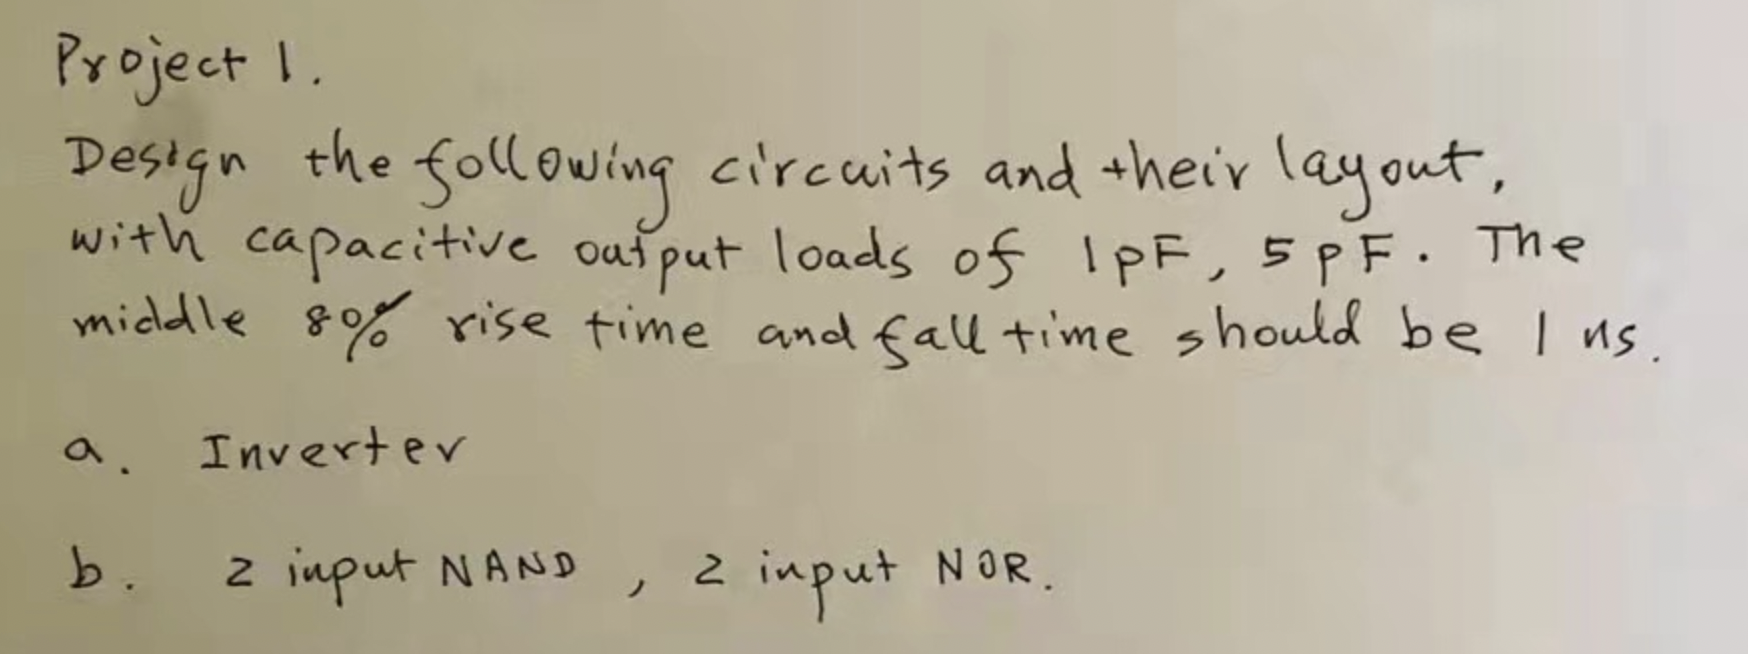 Project 1.
Design the following circuits and their layout,
with capacitive output loads of 1pF, 5pF. The
middle 80% rise time and fall time should be 1 ns.
a. Inverter
b. 2 input NAND, 2 input NOR.